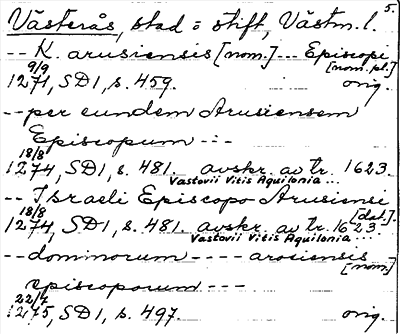 5.
Västerås, stad o stift, Västm. l.
-- K. arusiensis [nom.] --- Episcopi
[nom. pl.]
9/9
1271, SD1, s. 459. orig.
-- per eundem Arusiensem
Episcopum ---
18/8
1274, SD1, s. 481. avskr. av tr. 1623.
Vastovii Vitis Aquilonia...
-- Israeli Episcopo Arusiensi
[dat.]
18/8
1274, SD1, s. 481. avskr. av tr. 1623.
Vastovii Vitis Aquilonia...
-- dominorum ---- arosiensis
[nom.]
episcoporum ---
22/4
1275, SD1, s. 497. orig.